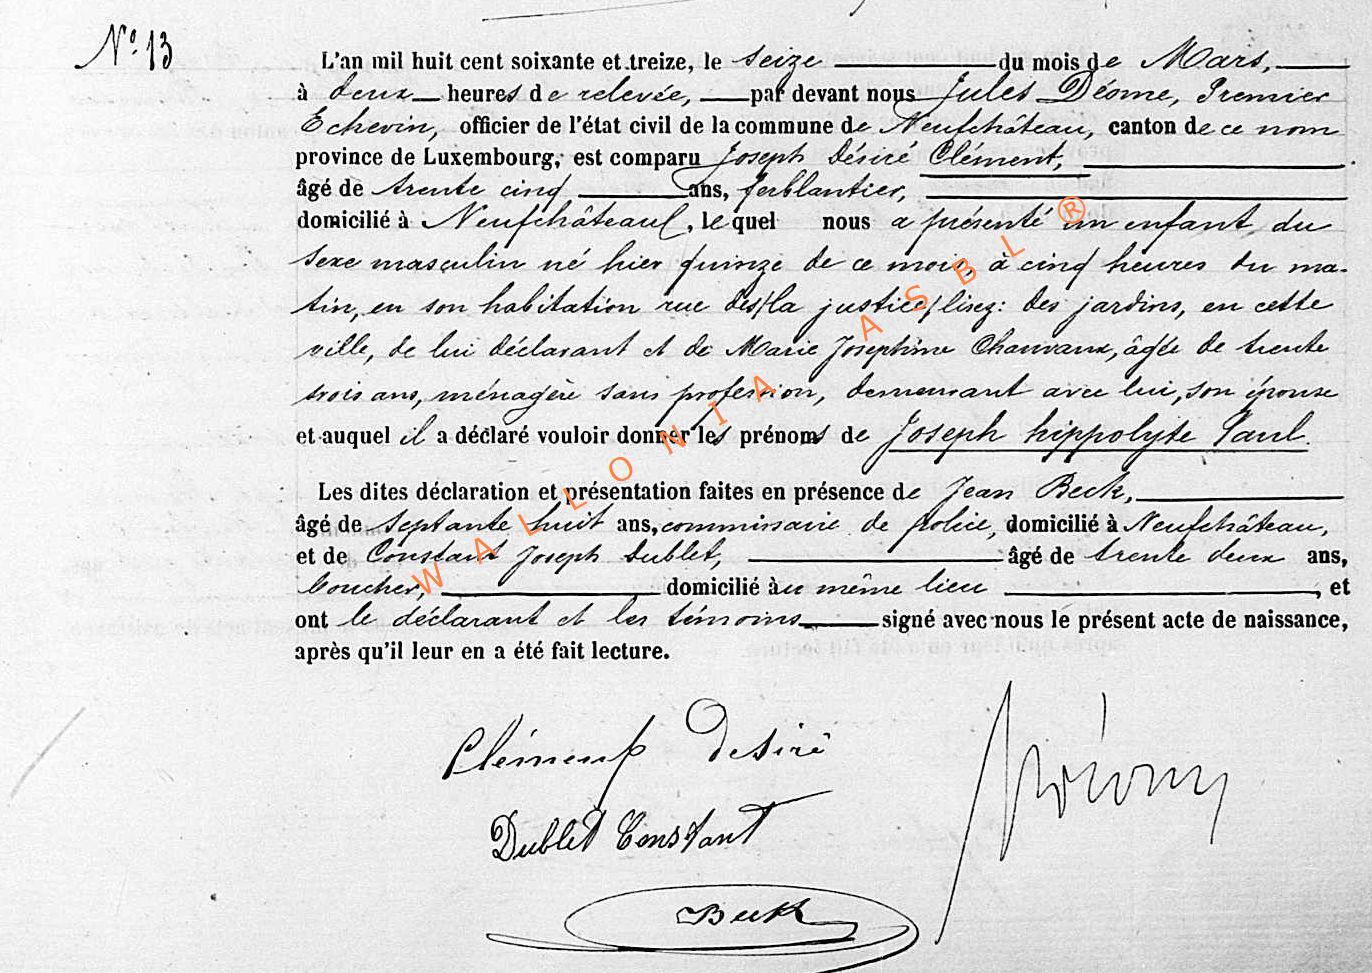 N° 13
L'an mil huit cent soixante et treize, le seize du mois de Mars,
à deux heures de relevée, par devant nous Jules Déome, Premier
Echevin, officier de l'état civil de la commune de Neufchâteau, canton de ce nom
province de Luxembourg, est comparu Joseph Désiré Clément,
âgé de trente cinq ans, ferblantier,
domicilié à Neufchâteau, lequel nous a présenté un enfant du
sexe masculin né hier quinze de ce mois, à cinq heures du ma-
tin, en son habitation rue des/la justice/lisez: des jardins, en cette
ville, de lui déclarant et de Marie Joséphine Chauvaux, âgée de trente
trois ans, ménagère sans profession, demeurant avec lui, son épouse
et auquel il a déclaré vouloir donner les prénoms de Joseph hippolyte Paul.
Les dites déclaration et présentation faites en présence de Jean Beck,
âgé de septante huit ans, commissaire de police, domicilié à Neufchâteau,
et de Constant Joseph Dublet, âgé de trente deux ans,
boucher, domicilié au même lieu, et
ont le déclarant et les témoins signé avec nous le présent acte de naissance,
après qu'il leur en a été fait lecture.
WALLONIA ASBL ®
Clément Desiré
Dublet Constant
Beck